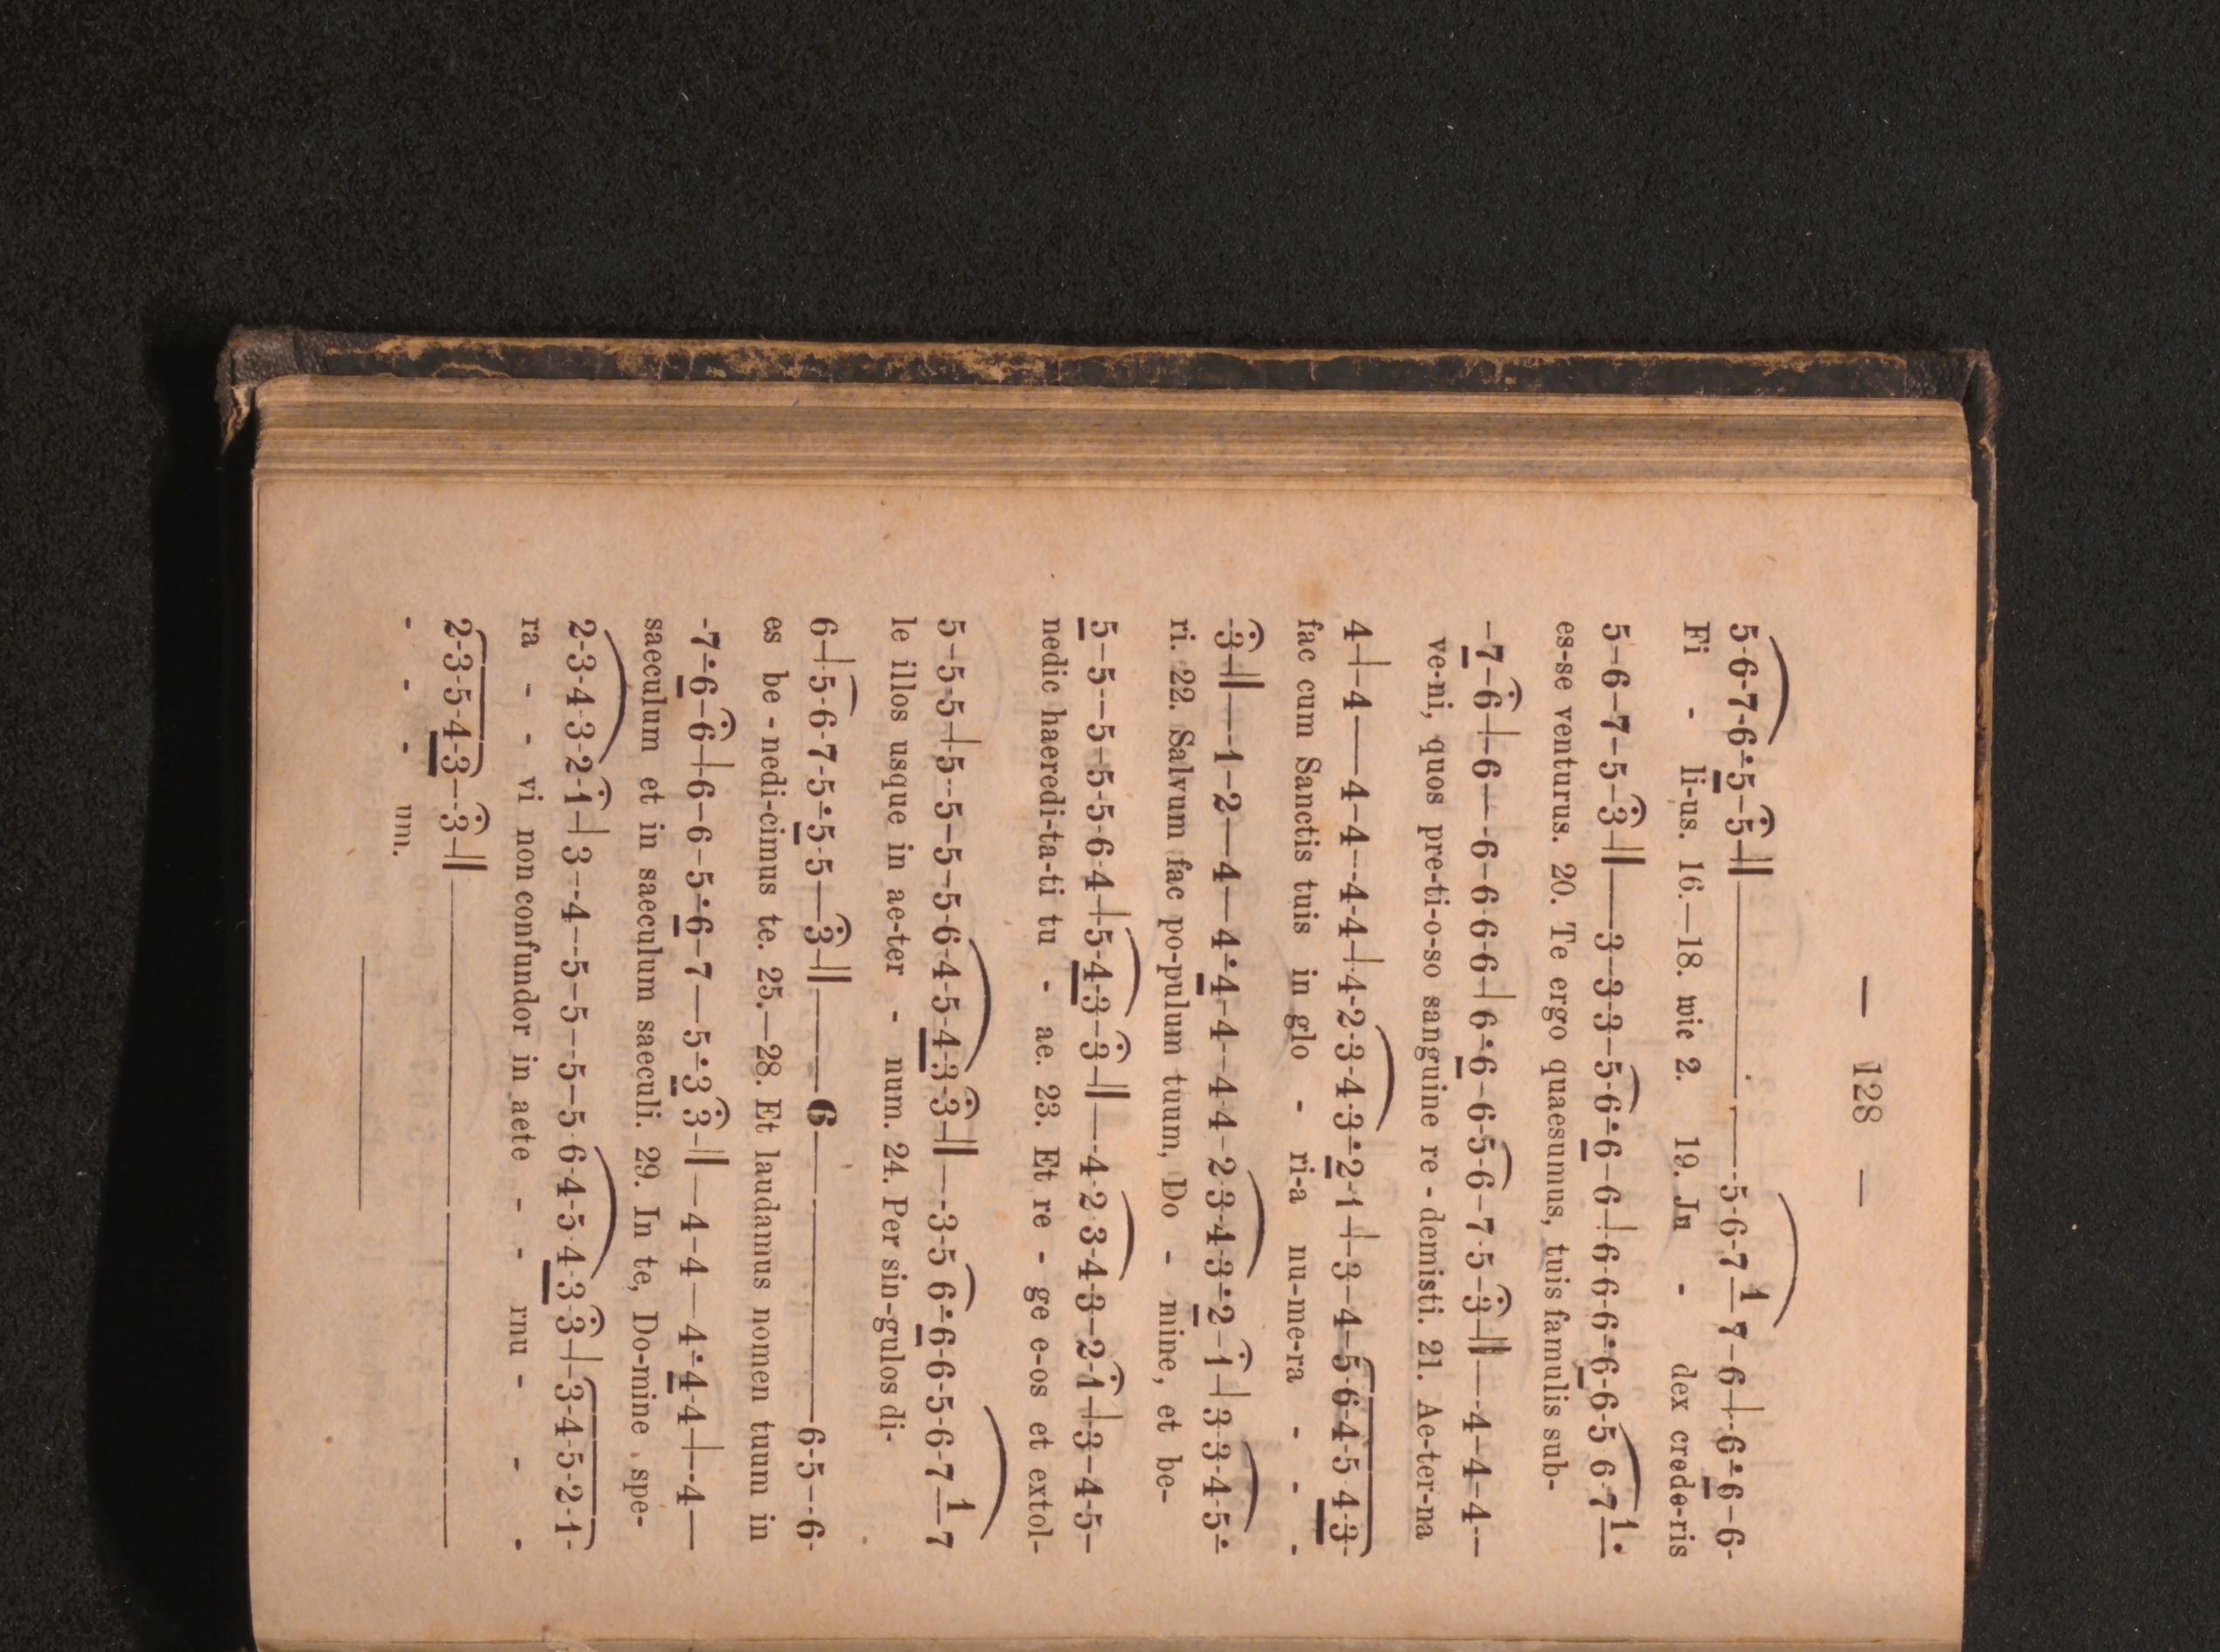 — 128 —
5-6-7-6·5-5-||——5-6-7-1-7-6-|-6·6-6-
Fi - li-us. 16.—18. wie 2. 19. Ju - dex crede-ris
5-6-7-5-3-||—3-3-3-5-6·6-6-|-6-6-6·6-6-5 6-7-1·
es-se venturus. 20. Te ergo quaesumus, tuis famulis sub-
-7-6-|-6—6-6-6-6-|-6·6-6-5-6-7-5-3-||—4-4-4-
ve-ni, quos pre-ti-o-so sanguine re-demisti. 21. Ae-ter-na
4-|-4—4-4-4-4-|-4-2-3-4-3·2-1-|-3-4-5-6-4-5-4-3-
fac cum Sanctis tuis in glo - ri-a nu-me-ra - - -
-3-||—1-2—4—4·4-4-4-4-2-3-4-3·2-1-|-3-3-4-5·
ri. 22. Salvum fac po-pulum tuum, Do - mine, et be-
5-5-5-5-5-6-4-|-5-4-3-3-||—4-2-3-4-3-2-1-|-3-4-5-
nedic haeredi-ta-ti tu - ae. 23. Et re - ge e-os et extol-
5-5-5-|-5-5-5-5-6-4-5-4-3-3-||—3-5 6·6-6-5-6-7-1-7
le illos usque in ae-ter - num. 24. Per sin-gulos di-
6-|-5-6-7-5·5-5—3-||——6————6-5-6-
es be-nedi-cimus te. 25.—28. Et laudamus nomen tuum in
-7·6-6-|-6-6-5·6-7—5·3 3-||—4-4—4·4-4-|-4—
saeculum et in saeculum saeculi. 29. In te, Do-mine spe-
2-3-4-3-2-1-|-3-4-5-5-5-5-6-4-5-4-3-3-|-3-4-5-2-1-
ra - - vi non confundor in aete - - rnu - - -
2-3-5-4-3-3-||————
- - - um.